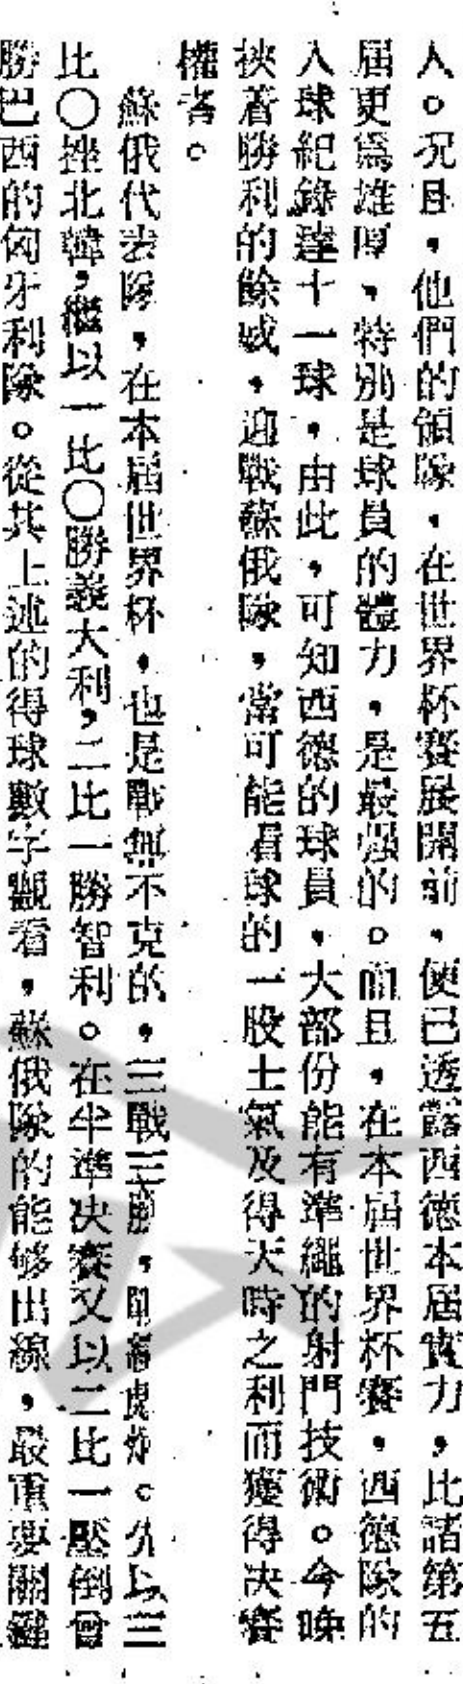 人。况且，他們的領隊，在世界杯賽展開前，便已透露西德本屆實力，比諸第五
屆更爲雄厚，特別是球員的體力，是最强的。而且，在本屆世界杯賽，西德隊的
入球紀錄達十一球，由此，可知西德的球員，大部份能有準繩的射門技術。今晚
挾着勝利的餘威，迎戰蘇俄隊，當可能看球的一股士氣及得天時之利而獲得决賽
權者。
蘇俄代表隊，在本屆世界杯，也是戰無不克的，三戰三勝，。分以三
比〇挫北韓，繼以一比〇勝義大利，二比一勝智利。在半準决賽又以二比一壓倒曾
勝巴西的匈牙利隊。從其上述的得球數字觀看，蘇俄隊的能够出線，最重要關鍵